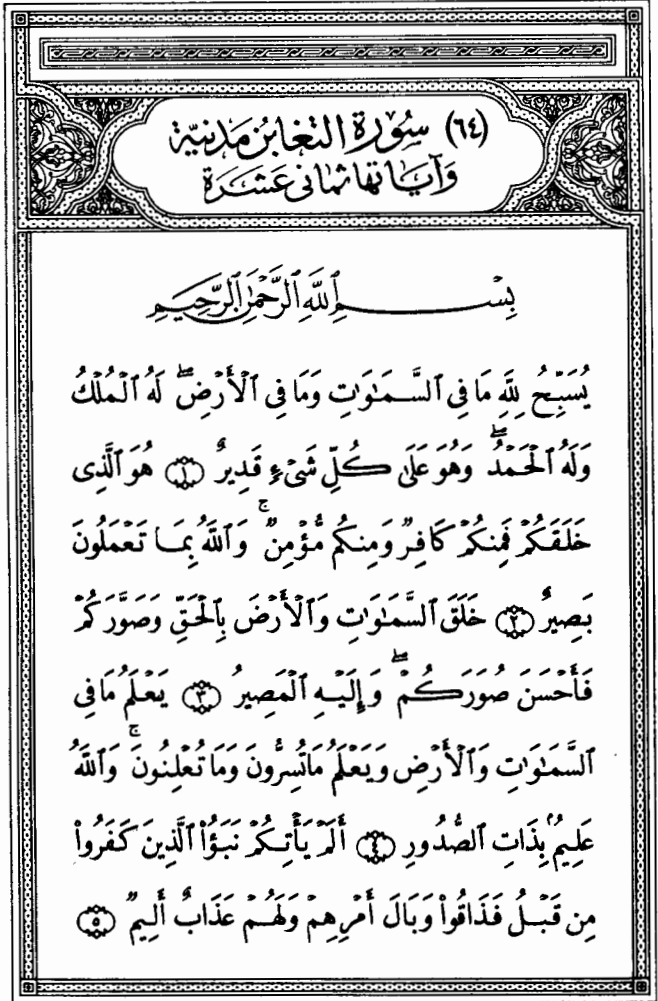 (٦٤) سُورَةُ التَّغَابُنِ مَدَنِيَّة
وَآيَاتهَا ثَمَانِي عَشَرَة
بِسْمِ ٱللَّهِ ٱلرَّحْمَٰنِ ٱلرَّحِيمِ
يُسَبِّحُ لِلَّهِ مَا فِى ٱلسَّمَٰوَٰتِ وَمَا فِى ٱلْأَرْضِۖ لَهُ ٱلْمُلْكُ
وَلَهُ ٱلْحَمْدُۖ وَهُوَ عَلَىٰ كُلِّ شَىْءٍ قَدِيرٌ ۝١ هُوَ ٱلَّذِى
خَلَقَكُمْ فَمِنكُمْ كَافِرٌ وَمِنكُم مُّؤْمِنٌۚ وَٱللَّهُ بِمَا تَعْمَلُونَ
بَصِيرٌ ۝٢ خَلَقَ ٱلسَّمَٰوَٰتِ وَٱلْأَرْضَ بِٱلْحَقِّ وَصَوَّرَكُمْ
فَأَحْسَنَ صُوَرَكُمْۖ وَإِلَيْهِ ٱلْمَصِيرُ ۝٣ يَعْلَمُ مَا فِى
ٱلسَّمَٰوَٰتِ وَٱلْأَرْضِ وَيَعْلَمُ مَا تُسِرُّونَ وَمَا تُعْلِنُونَۚ وَٱللَّهُ
عَلِيمٌۢ بِذَاتِ ٱلصُّدُورِ ۝٤ أَلَمْ يَأْتِكُمْ نَبَؤُا۟ ٱلَّذِينَ كَفَرُوا۟
مِن قَبْلُ فَذَاقُوا۟ وَبَالَ أَمْرِهِمْ وَلَهُمْ عَذَابٌ أَلِيمٌ ۝٥